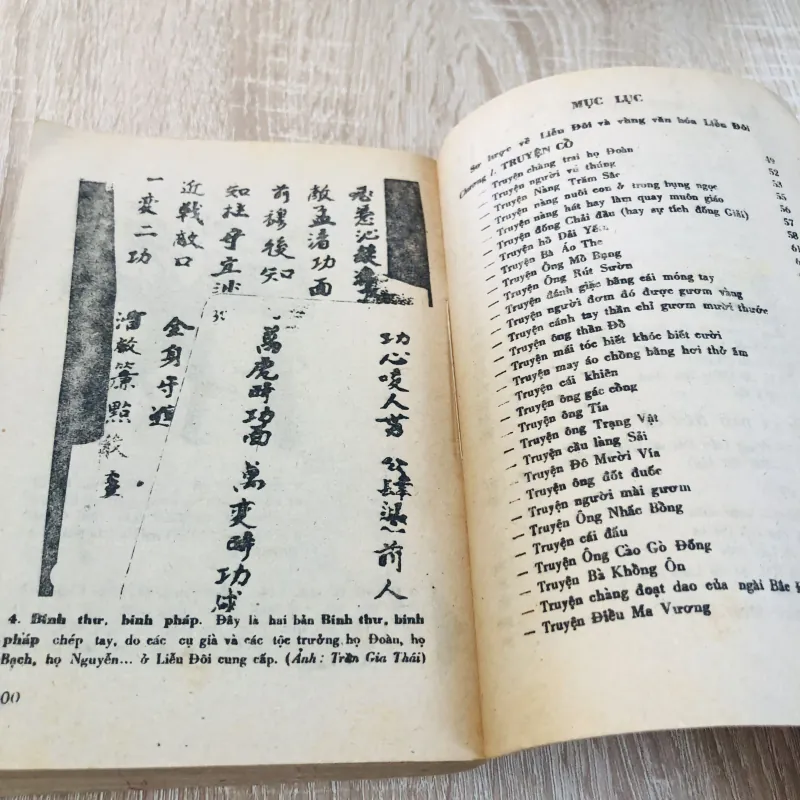 一变二功
近戰敵口
知拄守宜
前後知
敵孟清功面
點
金身守
萬虎醉功面萬变醉功成
功心人
前人
4. Binh thư, binh pháp. Đây là hai bản Binh thư, binh
pháp chép tay, do các cụ già và các tộc trưởng họ Đoàn, họ
Bạch, họ Nguyễn... ở Liễu Đôi cung cấp. (Ảnh: Trần Gia Thái)
00
MỤC LỤC
Sơ lược về Liễu Đôi và vùng văn hóa Liễu Đôi
Chương I. TRUYỆN CỔ
— Truyện chàng trai họ Đoàn 49
— Truyện người vú thúng 52
— Truyện Nàng Trăm Sắc 53
— Truyện nàng nuôi con ở trong bụng ngọc 55
— Truyện nàng hát hay làm quay muôn giáo 56
— Truyện đống Chải đầu (hay sự tích đống Giải) 57
— Truyện hồ Dải Yếm 58
— Truyện Bà Áo The 61
— Truyện Ông Mồ Bạng
— Truyện Ông Rút Sườn
— Truyện đánh giặc bằng cái móng tay
— Truyện người đơm đó được gươm vàng
— Truyện cánh tay thần chỉ gươm mười thước
— Truyện ông thần Đồ
— Truyện mái tóc biết khóc biết cười
— Truyện may áo chồng bằng hơi thở ấm
— Truyện cái khiên
— Truyện ông gác cồng
— Truyện ông Tía
— Truyện ông Trạng Vật
— Truyện cầu làng Sải
— Truyện Đô Mười Vía
— Truyện ông đốt đuốc
— Truyện người mài gươm
— Truyện Ông Nhắc Bồng
— Truyện cái đấu
— Truyện Ông Cào Gò Đống
— Truyện Bà Không Ôn
— Truyện chàng đoạt dao của ngài Bắc
— Truyện Điều Ma Vương